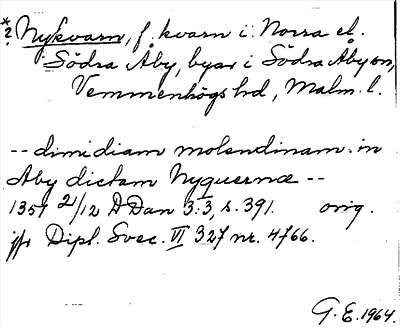 *
? Nykvarn, f. kvarn i Norra el.
Södra Åby, byar i Södra Åby sn,
Vemmenhögs hd, Malm. l.
-- dimidiam molendinam in
Aby dictam Nyquernæ --
1351 2/12 DDan 3:3, s. 391. orig.
jfr Dipl. Svec. VI 327 nr. 4766.
G. E. 1964.